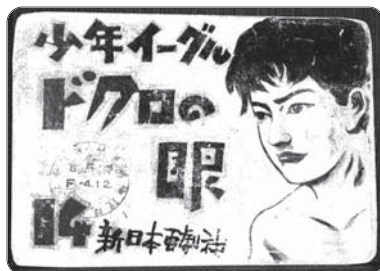 少年イーグル
ドクロの
眼
F-412
14 新日本画劇社